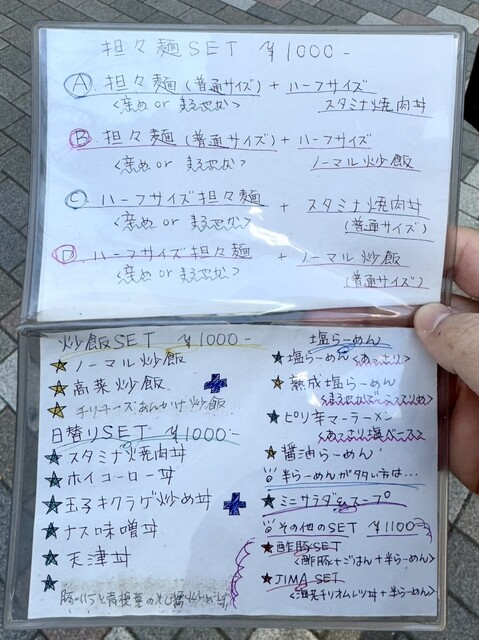 担々麺SET ¥1000-
Ⓐ 担々麺(普通サイズ) + ハーフサイズ
<辛め or まろやか> スタミナ焼肉丼
Ⓑ 担々麺(普通サイズ) + ハーフサイズ
<辛め or まろやか> ノーマル炒飯
Ⓒ ハーフサイズ担々麺 + スタミナ焼肉丼
<辛め or まろやか> (普通サイズ)
Ⓓ ハーフサイズ担々麺 + ノーマル炒飯
<辛め or まろやか> (普通サイズ)
炒飯SET ¥1000-
★ノーマル炒飯
★高菜炒飯
★チリチーズあんかけ炒飯
日替りSET ¥1000-
★スタミナ焼肉丼
★ホイコーロー丼
★玉子キクラゲ炒め丼
★ナス味噌丼
★天津丼
★
+
+
塩らーめん
★塩らーめん<あっさり>
★熟成塩らーめん
★ピリ辛マーラーメン
<あっさり塩ベース>
★醤油らーめん
半らーめんが多い方は…
★ミニサラダ&スープ
その他のSET ¥1100-
★酢豚SET
<酢豚+ごはん+半らーめん>
★JIMA SET
<海老チリオムレツ丼+半らーめん>